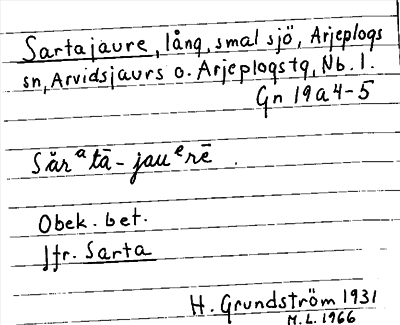 Sartajaure, lång, smal sjö, Arjeplogs
sn, Arvidsjaurs o. Arjeplogs tg, Nb. l.
Gn 19a4-5
Sărᵃtā-jauᵉrē.
Obek. bet.
Jfr. Sarta
H. Grundström 1931
M.L. 1966